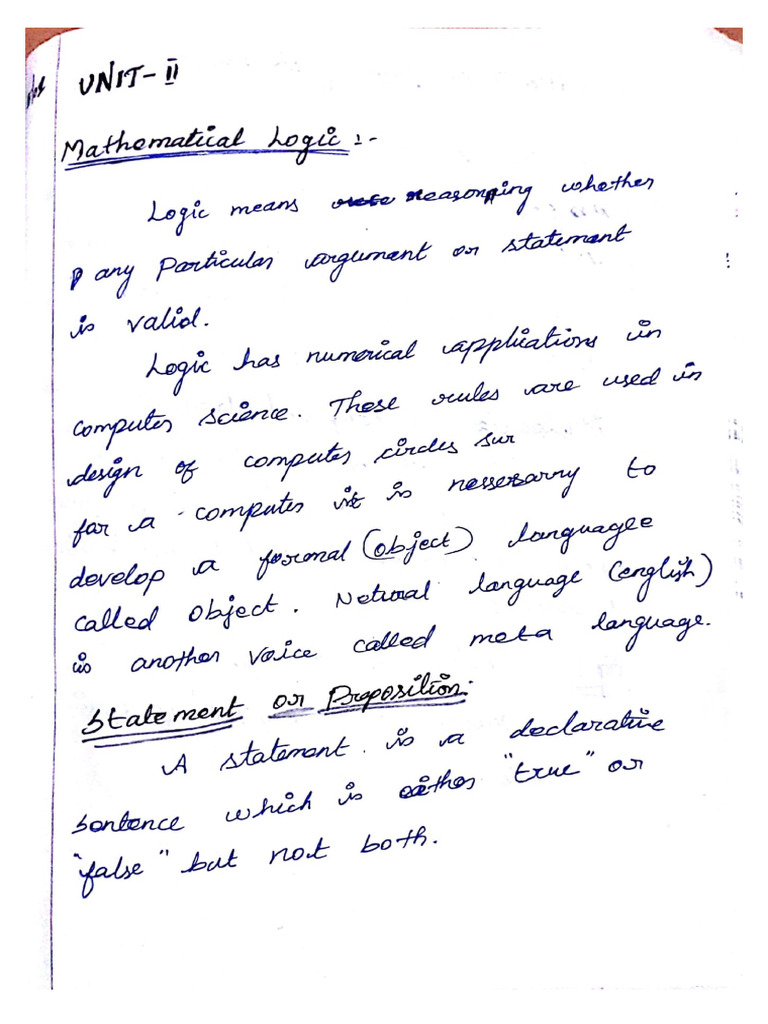 UNIT-II
Mathematical Logic :-
Logic means reasoning whether
any Particular argument or statement
is valid.
Logic has numerical applications in
computer science. These rules are used in
design of computer circles sur
for a computer it is nessesarry to
develop a formal (object) languagee
called object. Netural language (english)
is another voice called meta language.
Statement or Proposition:
A statement is a declarative
sentence which is either "true" or
"false" but not both.